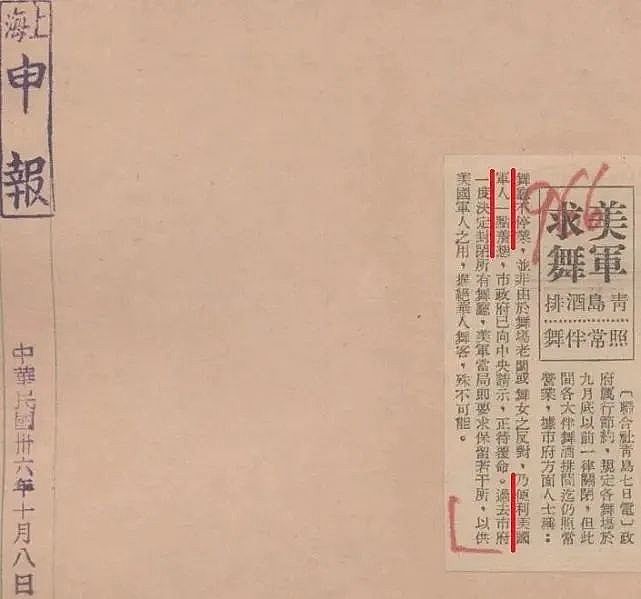 上海
申報
中華民國卅六年十月八日
966
美軍
求舞
青島酒排
照常伴舞
〔聯合社青島七日電〕政
府厲行節約，規定各舞場於
九月底以前一律關閉，但此
間各大伴舞酒排間迄仍照常
營業，據市府方面人士稱：
舞廳不停業，並非由於舞場老闆或舞女之反對，乃便利美國
軍人一點，市政府已向中央請示，正待覆命。過去市府
一度決定封閉所有舞廳，美軍當局即要求保留若干所，以供
美國軍人之用，摒絕華人舞客，殊不可能。